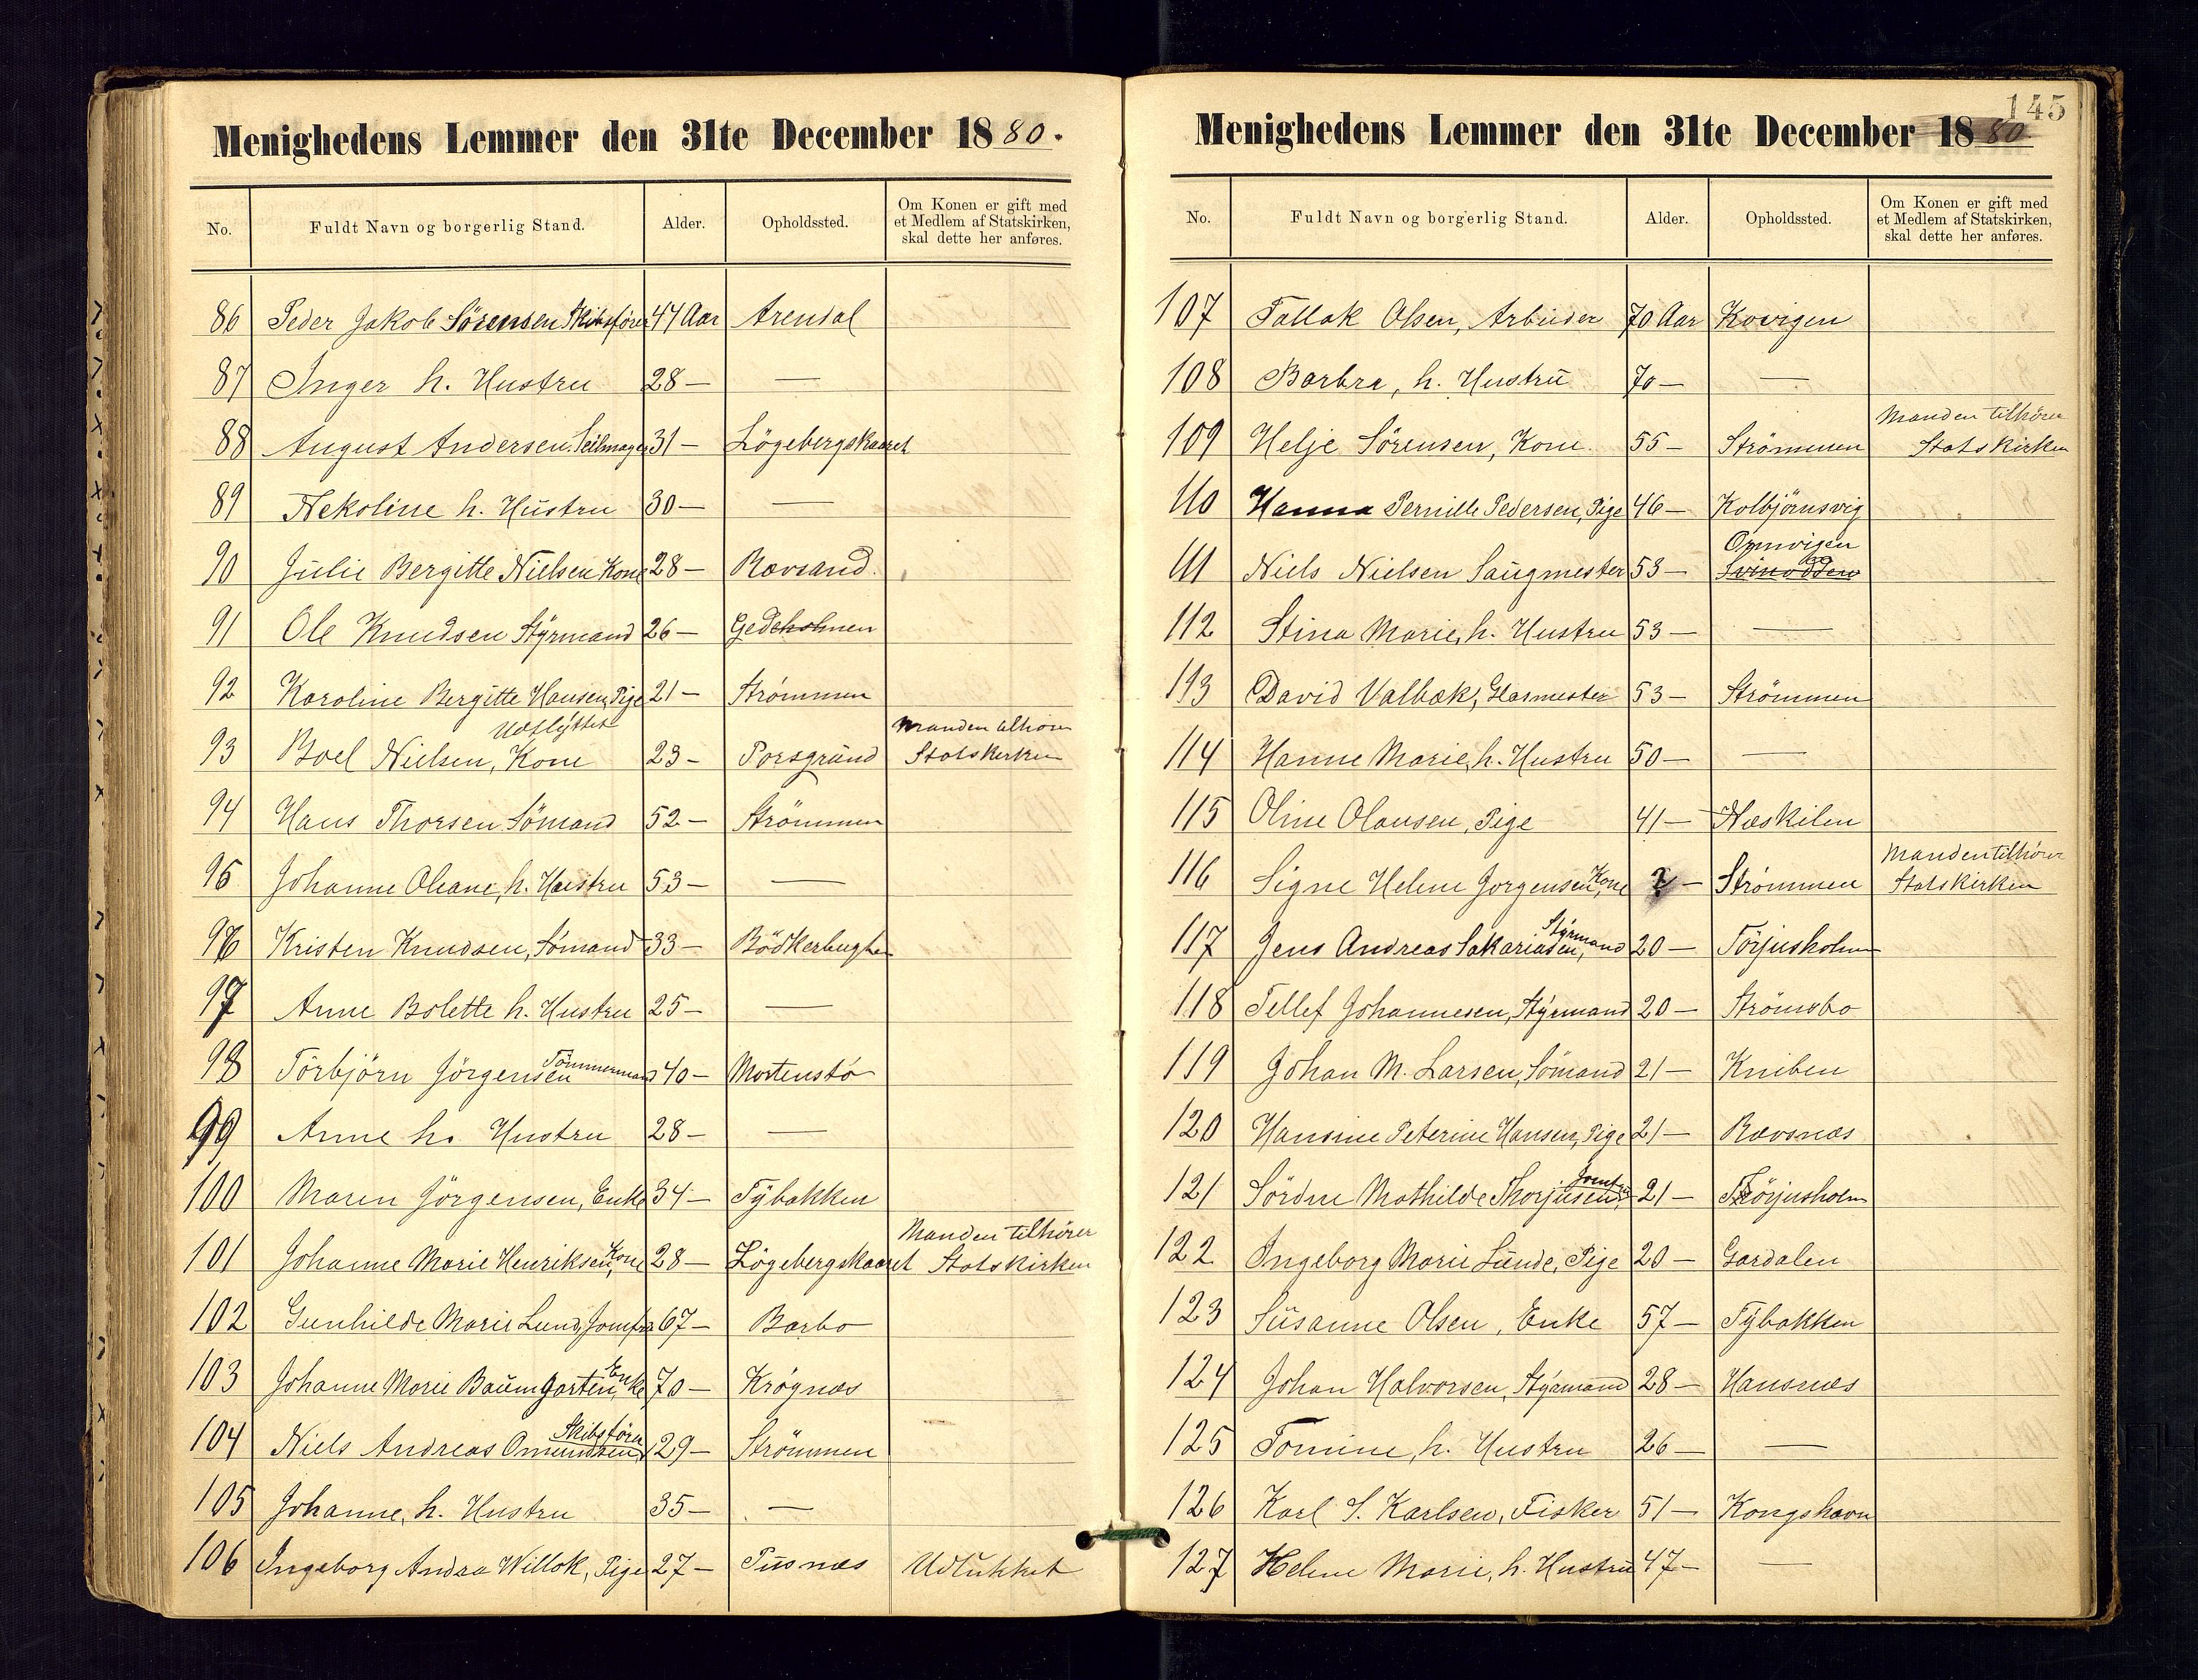 Menighedens Lemmer den 31te December 1880.
No. Fuldt Navn og borgerlig Stand. Alder. Opholdssted. Om Konen er gift med et Medlem af Statskirken, skal dette her anføres.
86 Peder Jakob Sörensen Skibsförer 47 Aar Arendal
87 Inger h. Hustru 28 — —
88 August Andersen Seilmager 31 — Lögebergskaaret
89 Nekoline h. Hustru 30 — —
90 Julie Bergitte Nielsen Kone 28 — Rævsand.
91 Ole Knudsen Styrmand 26 — Gedeholmen
92 Karoline Bergitte Hansen, Pige 21 — Strömmen
Udflyttet
93 Boel Nielsen, Kone 23 — Porsgrund Manden tilhörer Statskirken
94 Hans Thorsen Sömand 52 — Strömmen
95 Johanne Oleane, h. Hustru 53 — —
96 Kristen Knudsen, Sömand 33 — Bödkerbugten
97 Anne Bolette h. Hustru 25 — —
98 Törbjörn Jörgensen Tömmermand 40 — Mortenstö
99 Anne h. Hustru 28 — —
100 Maren Jörgensen, Enke 34 — Tybakken
101 Johanne Marie Henriksen, Kone 28 — Lögebergskaaret Manden tilhörer Statskirken
102 Gunhilde Marie Lund, Jomfru 67 — Barbo
103 Johanne Marie Baumgarten, Enke 70 — Krögnæs
104 Niels Andreas Omundsen, Skibsförer 29 — Strömmen
105 Johanne, h. Hustru 35 — —
106 Ingeborg Andrea Willok, Pige 27 — Pusnæs Udlukket
145
Menighedens Lemmer den 31te December 1880
No. Fuldt Navn og borgerlig Stand. Alder. Opholdssted. Om Konen er gift med et Medlem af Statskirken, skal dette her anføres.
107 Tallak Olsen, Arbeider 70 Aar Kovigen
108 Barbra, h. Hustru 70 — —
109 Helje Sörensen, Kone. 55 — Strömmen Manden tilhörer Statskirken
110 Hanna Pernille Pedersen, Pige 46 — Kolbjörnsvig
111 Niels Nielsen Saugmester 53 — Svinodden Omvigen
112 Stina Marie, h. Hustru 53 — —
113 David Valbæk, Glasmester 53 — Strömmen
114 Hanne Marie, h. Hustru 50 — —
115 Oline Olausen, Pige 41 — Næskilen
116 Signe Helene Jorgensen, Kone ? — Strömmen Manden tilhörer Statskirken
117 Jens Andreas Sakariasen, Styrmand 20 — Törjusholm
118 Tellef Johannesen, Styrmand 20 — Strömsbo
119 Johan M. Larsen, Sömand 21 — Kniben
120 Hansine Peterine Hansen, Pige 21 — Rævsnæs
121 Sördne Mathilde Thorjusen, Jomfru 21 — Törjusholm
122 Ingeborg Marie Lunde, Pige 20 — Gardalen
123 Susanne Olsen, Enke 57 — Tybakken
124 Johan Halvorsen, Styrmand 28 — Hansnæs
125 Tomine, h. Hustru 26 — —
126 Karl S. Karlsen, Fisker 51 — Kongshavn
127 Helene Marie, h. Hustru 47 — —